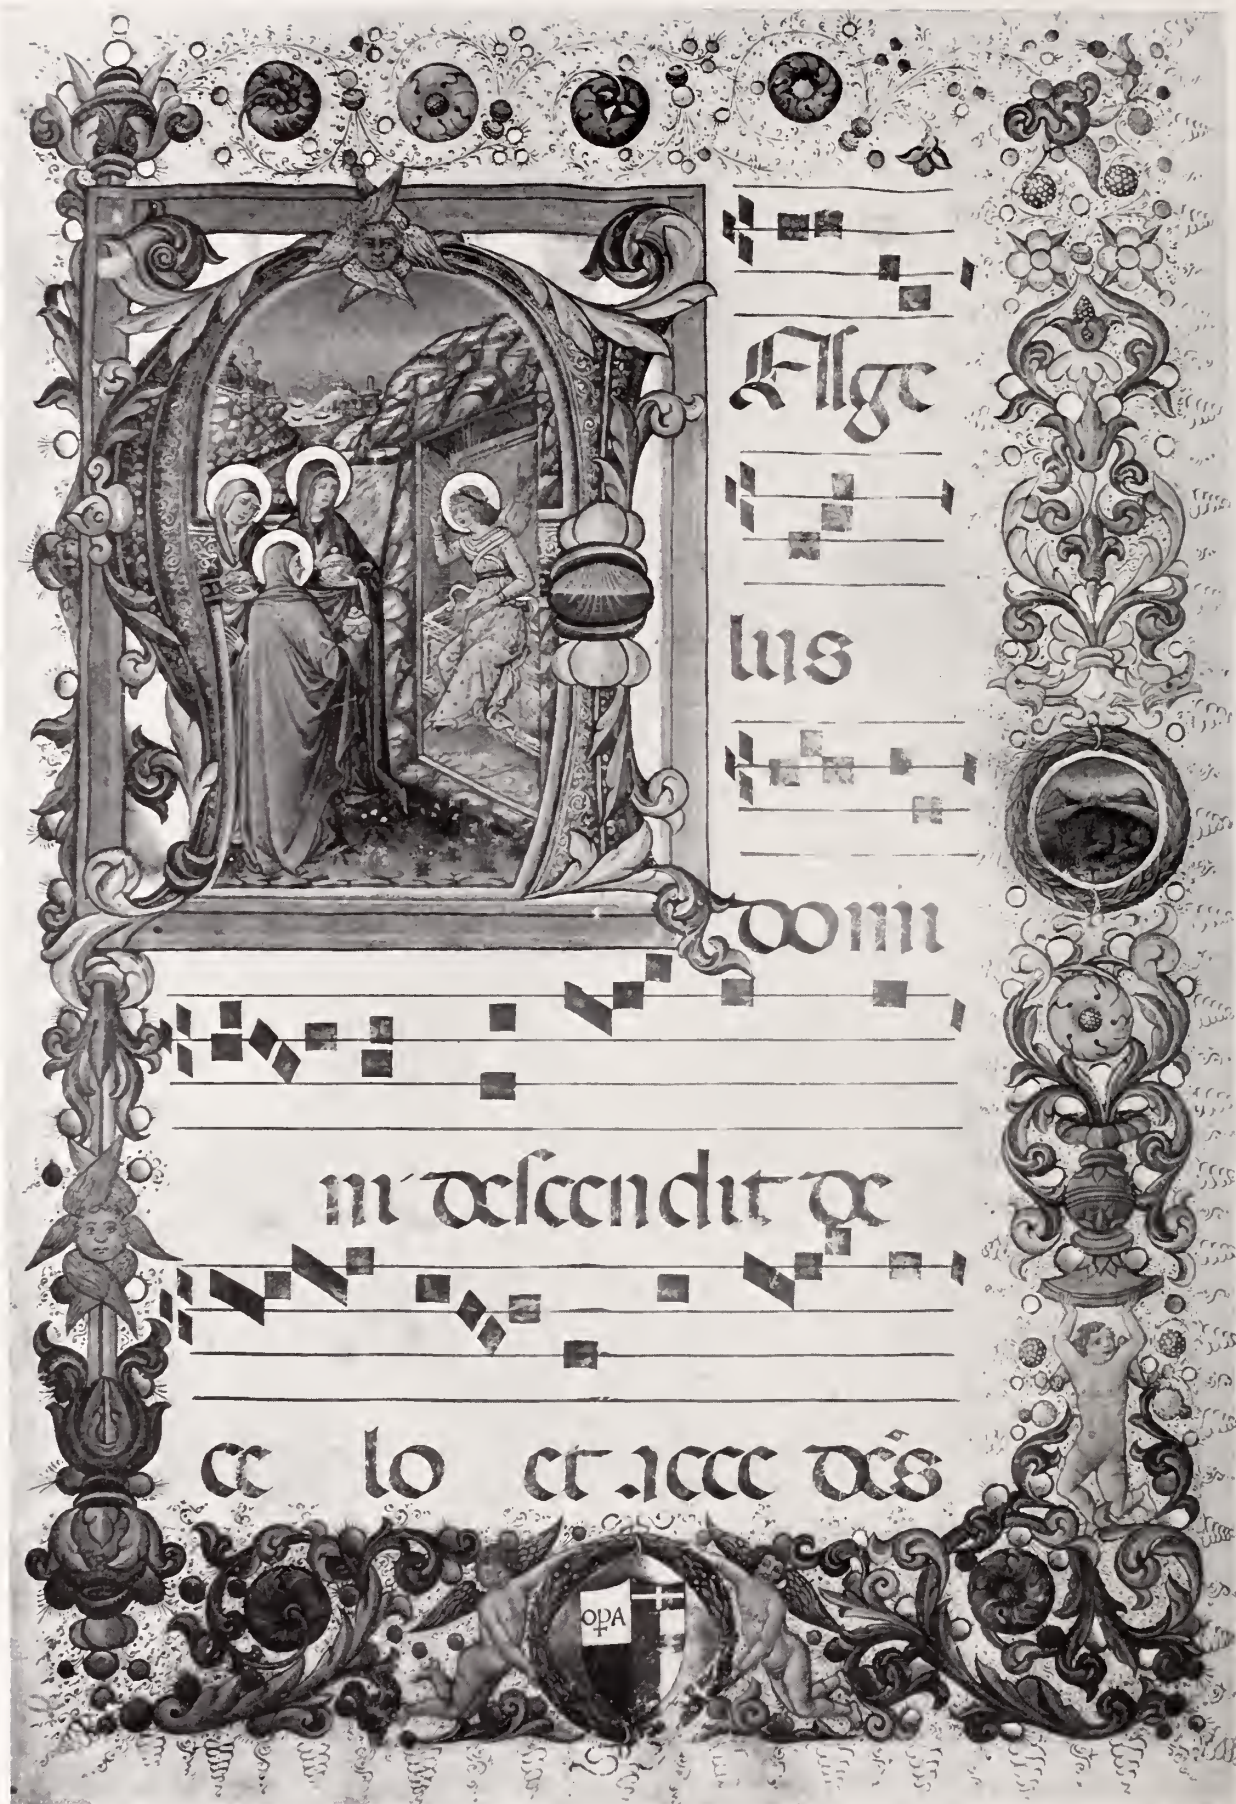 Alge
lus
domi
ni descendit de
ce lo et acce des
OPA